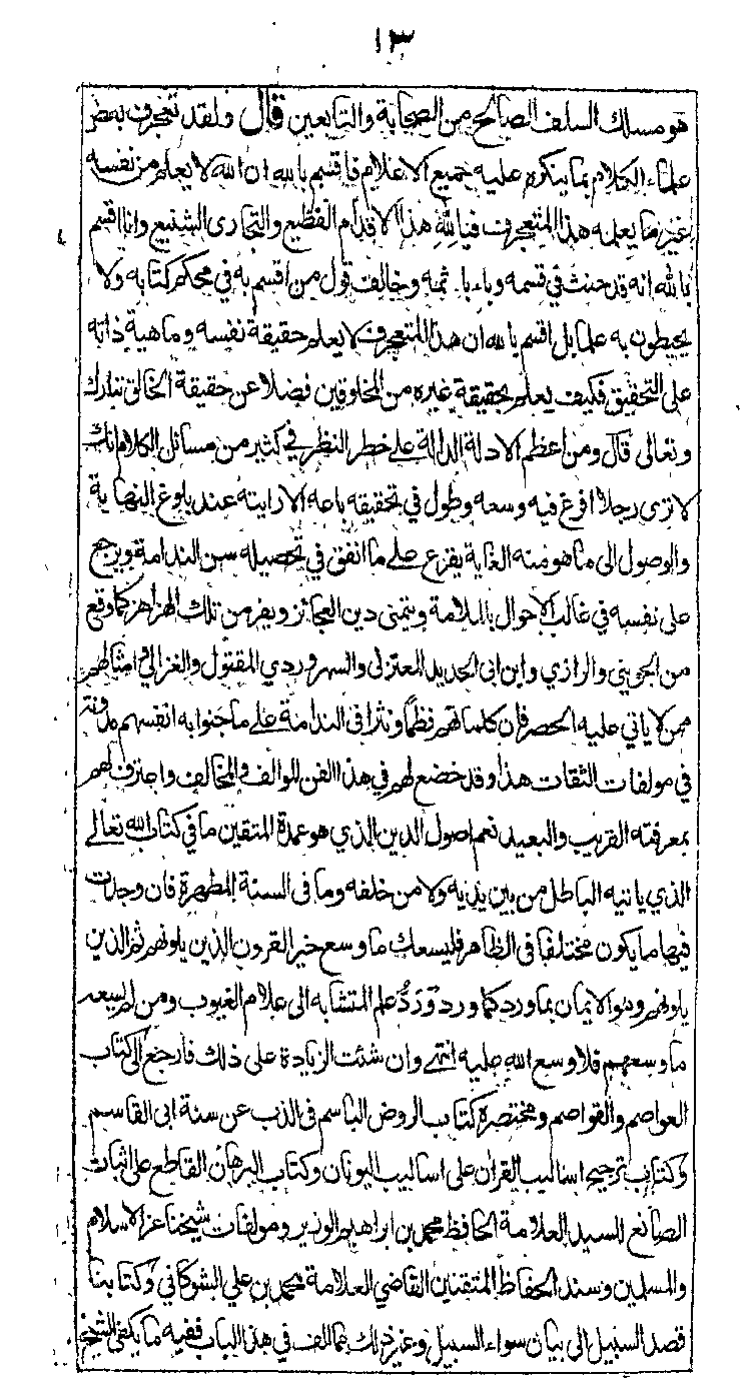 ١٣
هو مسلك السلف الصالح من الصحابة والتابعين قال ولقد تعجرف بعض
علماء الكلام بما ينكره عليه جميع الاعلام فاقسم بالله ان الله لا يعلم من نفسه
غير ما يعلمه هذا المتعجرف فيالله هذا الاقدام الفظيع والتجارى الشنيع وانا اقسم
بالله انه قد حنث في قسمه وباء باثمه وخالف قول من اقسم به في محكم كتابه ولا
يحيطون به علما بل اقسم بالله ان هذا المتعجرف لا يعلم حقيقة نفسه وماهية ذاته
على التحقيق فكيف يعلم بحقيقة غيره من المخلوقين فضلا عن حقيقة الخالق تبارك
وتعالى قال ومن اعظم الادلة الدالة على خطر النظر في كثير من مسائل الكلام انك
لا ترى رجلا افرغ فيه وسعه وطول في تحقيقه باعه الا رايته عند بلوغ النهاية
والوصول الى ما هو منه الغاية يقرع على ما انفق في تحصيله سن الندامة ويرجع
على نفسه في غالب الاحوال بالملامة ويتمنى دين العجائز ويفر من تلك الهزاهز كما وقع
من الجويني والرازي وابن ابى الحديد المعتزلى والسهروردي المقتول والغزالي وامثالهم
ممن لا ياتي عليه الحصر فان كلماتهم نظما ونثرا فى الندامة على ما جنوا به انفسهم مدونة
في مولفات الثقات هذا وقد خضع لهم في هذا الفن الموالف والمخالف واعترف لهم
بمعرفته القريب والبعيد نعم اصول الدين الذي هو عمدة المتقين ما في كتاب الله تعالى
الذي ياتيه الباطل من بين يديه ولا من خلفه وما فى السنة المطهرة فان وجدت
فيها ما يكون مختلفا فى الظاهر فليسعك ما وسع خير القرون الذين يلونهم ثم الذين
يلونهم وهو الايمان بما ورد كما ورد ورد علم المتشابه الى علام الغيوب ومن لم يسعه
ما وسعهم فلا وسع الله عليه انتهى وان شئت الزيادة على ذلك فارجع الى كتاب
العواصم والقواصم ومختصره كتاب الروض الباسم فى الذب عن سنة ابى القاسم
وكتاب ترجيح اساليب القران على اساليب اليونان وكتاب البرهان القاطع على اثبات
الصانع للسيد العلامة الحافظ محمد بن ابراهيم الوزير ومولفات شيخنا عز الاسلام
والمسلمين وسند الحفاظ المتقنين القاضي العلامة محمد بن علي الشوكاني وكتابنا
قصد السبيل الى بيان سواء السبيل وغير ذلك مما الف في هذا الباب ففيه ما يكفى الشحيح